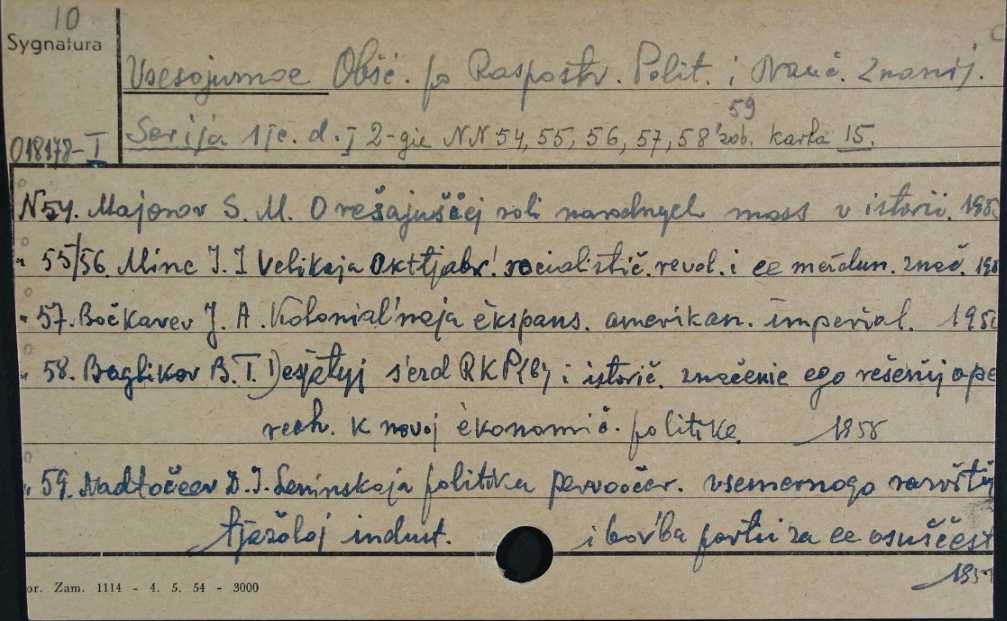 10
Sygnatura
018178-I
Vsesojuznoe Obšč. po Rasprostr. Polit. i Nauč. Znanij.
59
Serija 1 je. d. I 2-gie NN 54, 55, 56, 57, 58 zob. karta 15.
N 54. Majorov S. M. O rešajuščej roli narodnych mass v istorii. 195
" 55/56. Minc I. I Velikaja Oktjabr'. socialistič. revol. i ee meždun. znač. 195
" 57. Bočkarev J. A. Kolonial'naja èkspans. amerikan. imperial. 195
" 58. Baglikov B. T. Desjatyj s'ezd RKP(b) i istorič. značenie ego rešenij o pe
rech. k novoj èkonomič. politike. 1958
" 59. Nadtočeev D. I. Leninskaja politika pervoočer. vsemernogo razvitij
tjažoloj indust. i bor'ba partii za ee osuščest
195
or. Zam. 1114 - 4. 5. 54 - 3000